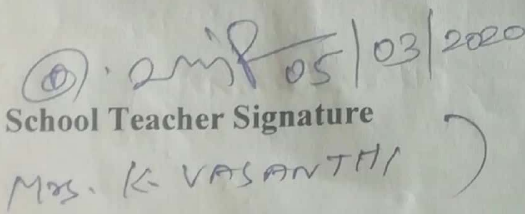 05/03/2020
School Teacher Signature
Mrs. K. VASANTHI )